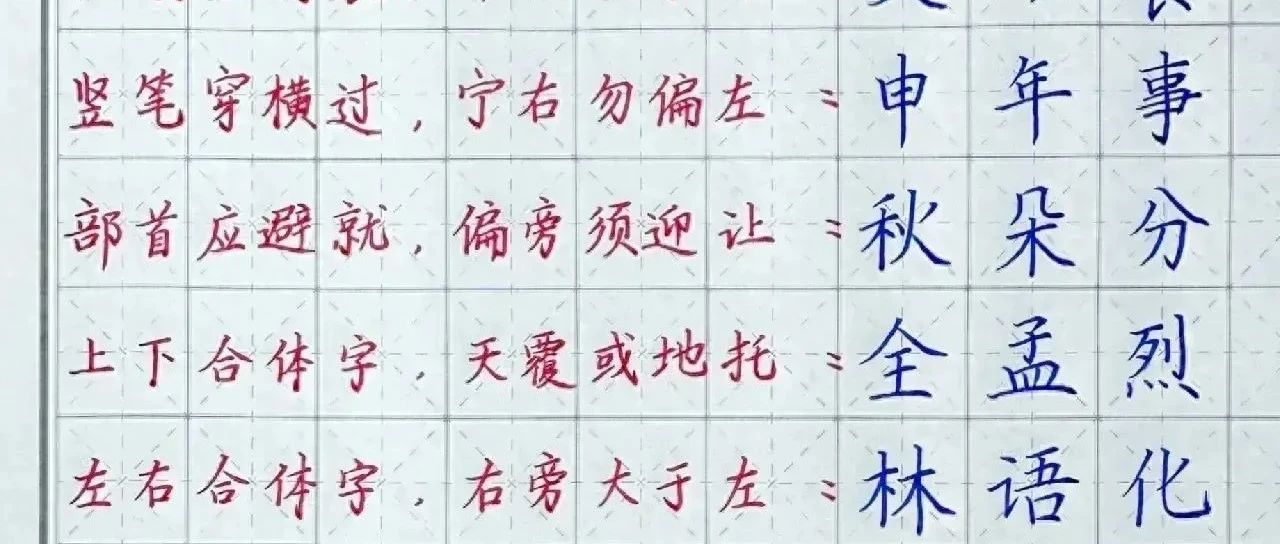 竖笔穿横过,宁右勿偏左:申年事
部首应避就,偏旁须迎让:秋朵分
上下合体字,天覆或地托:全孟烈
左右合体字,右旁大于左:林语化